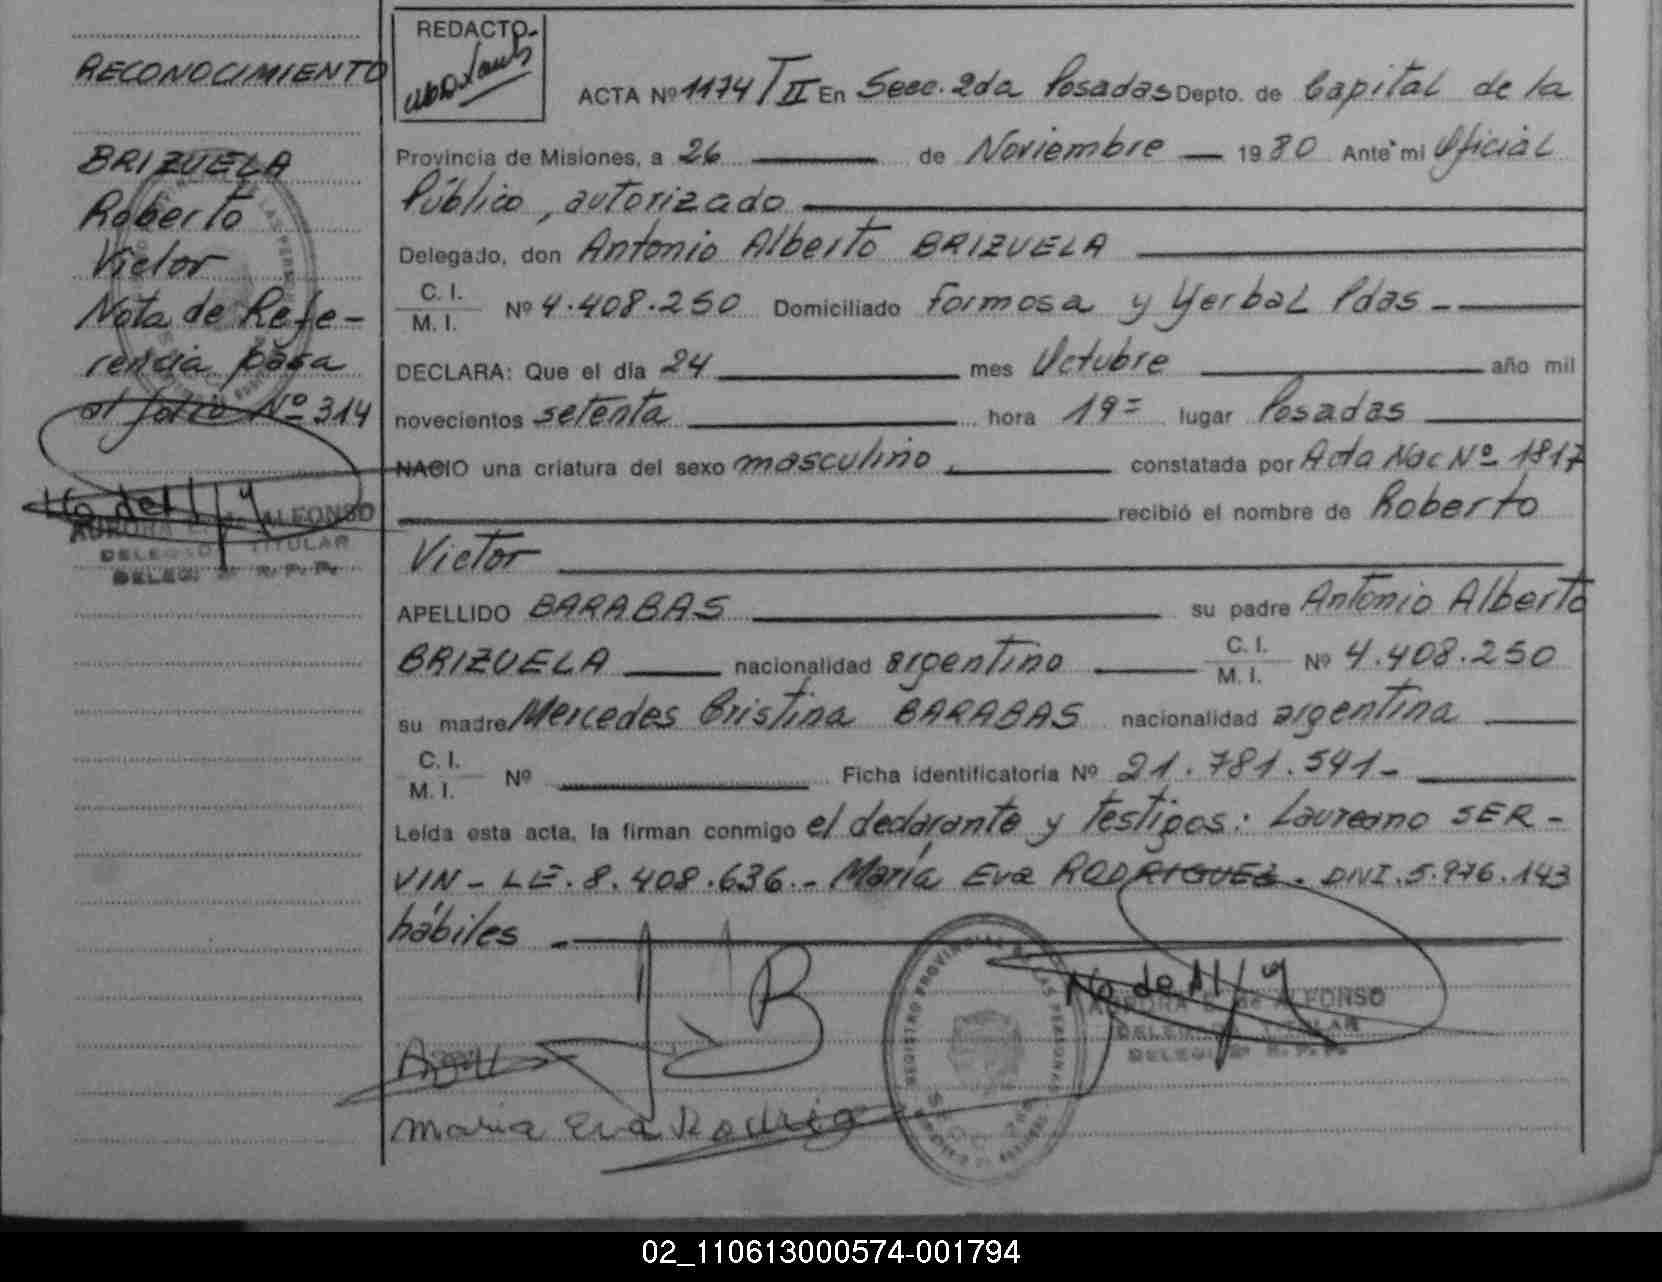 RECONOCIMIENTO
BRIZUELA
Roberto
Victor
Nota de Refe-
rencia pasa
al folio Nº 314
AURORA de ALFONSO
DELEGADA TITULAR
DELEG. 2ª R. P. P.
REDACTO-
ACTA Nº 1174/T II En Secc. 2da Posadas Depto. de Capital de la
Provincia de Misiones, a 26 de Noviembre 1980 Ante mi Oficial
Público, autorizado
Delegado, don Antonio Alberto BRIZUELA
C. I.
M. I. Nº 4.408.250 Domiciliado Formosa y Yerbal Pdas -
DECLARA: Que el día 24 mes Octubre año mil
novecientos setenta hora 19= lugar Posadas
NACIO una criatura del sexo masculino, constatada por Acta Nac Nº 1817
recibió el nombre de Roberto
Victor
APELLIDO BARABAS su padre Antonio Alberto
BRIZUELA nacionalidad argentino C. I. M. I. Nº 4.408.250
su madre Mercedes Cristina BARABAS nacionalidad argentina
C. I.
M. I. Nº Ficha identificatoria Nº 21.781.541-
Leída esta acta, la firman conmigo el declarante y testigos: Laureano SER-
VIN - LE. 8.408.636.- María Eva RODRIGUEZ. DNI. 5.976.143
hábiles -
REGISTRO PROVINCIAL DE LAS PERSONAS
AURORA de ALFONSO
DELEGADA TITULAR
DELEG. 2ª R. P. P.
Maria Eva Rodrig
02_110613000574-001794